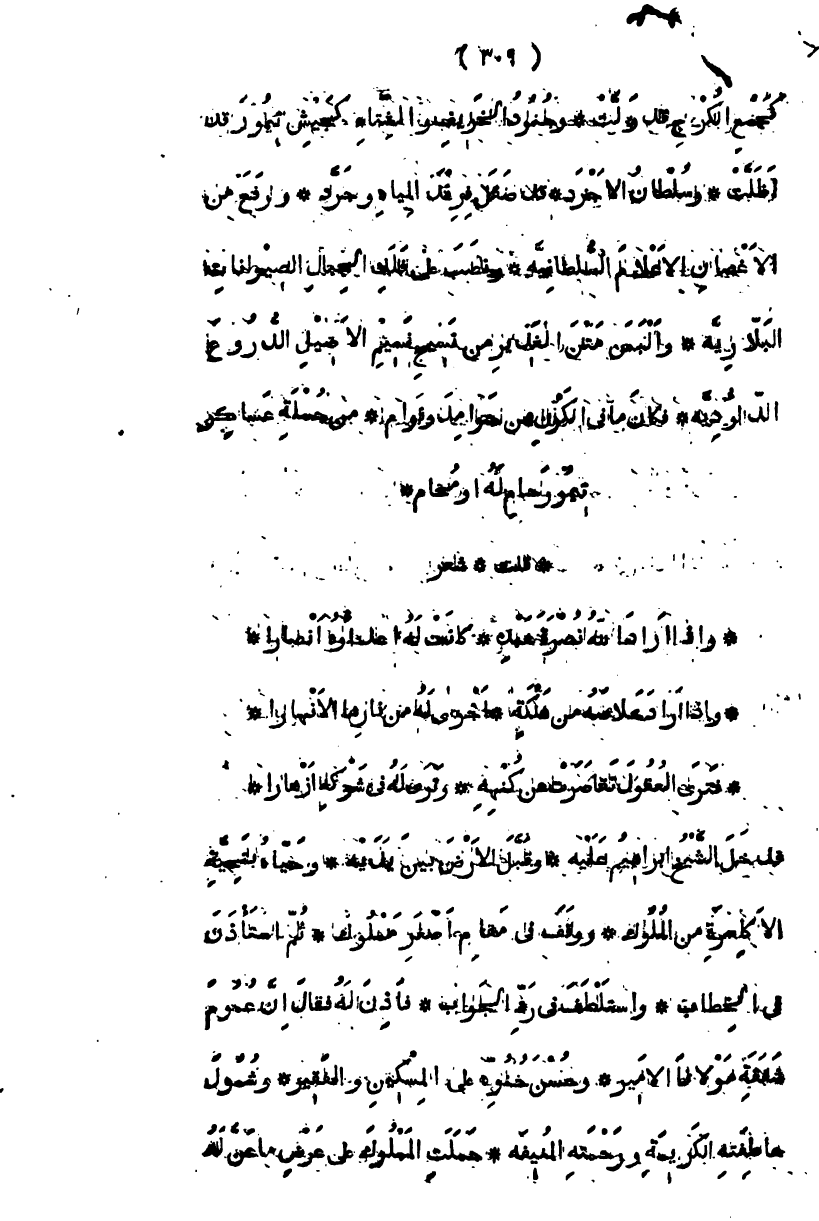 ( ٣٠٩ )
كَجَمْعِ الكُرْجِ قد وَلَّتْ * وجُنُودُ الخَرِيفِ والمَشْتاءِ كَجَيْشِ تَيْمُورَ قد
اَظَلَّتْ * وسُلْطانُ الاَجْرَد * قد صَقَلَ فِرِنْدَ المِياهِ وجَرَّد * ورَفَعَ من
الاَغْصانِ الاَعْلامَ السُّلْطانِيَّه * ونَصَبَ على قُلَلِ الجِبالِ الصِيْوانات
البَلّارِيَّه * واَلْبَسَ مَتْنَ الغَدِيرِ من نَسْجِ نَسِيْمِ الاَصِيْلِ الدُّرُوعَ
الدّاوُدِيَّه * فكانَ ما فى الكَوْنِ من جَوامِدَ ونَوامٍ * من جُمْلَةِ عَساكِرِ
تَيْمُورَ حامٍ لَهُ او مُحامٍ *
* قلت * شعر
* واذا اَرادَ اللّٰهُ نُصْرَةَ عَبْدِهِ * كانَتْ لَهُ اَعْداؤُهُ اَنْصارا *
* واذا اَرادَ خَلاصَهُ من هَلْكَةٍ * اَجْرى لَهُ من نارِها الاَنْهارا *
* فتَرى العُقُولَ تَقاصَرَتْ عن كُنْهِهِ * وتَرى لَهُ فى شَوْكِهِ اَزْهارا *
فدخَلَ الشَّيْخُ ابراهِيمُ عَلَيْهِ * وقَبَّلَ الاَرْضَ بَيْنَ يَدَيْهِ * وحَيّاهُ بتَحِيَّةِ
الاَكاسِرَةِ من المُلُوك * ووقَفَ فى مَقامِ اَصْغَرِ مَمْلُوك * ثُمَّ استَأْذَنَ
فى الخِطاب * واستَلْطَفَ فى رَدِّ الجَواب * فاَذِنَ لَهُ فقالَ اِنَّ عُمُومَ
شَفَقَةِ مَوْلانا الاَمِير * وحُسْنَ حُنُوِّهِ على المِسْكِينِ والفَقِير * وشُمُولَ
عاطِفَتِهِ الكَرِيمَةِ ورَحْمَتِهِ المُنِيفَه * حَمَلَتِ المَمْلُوكَ على عَرْضِ ما عَنَّ لَهُ